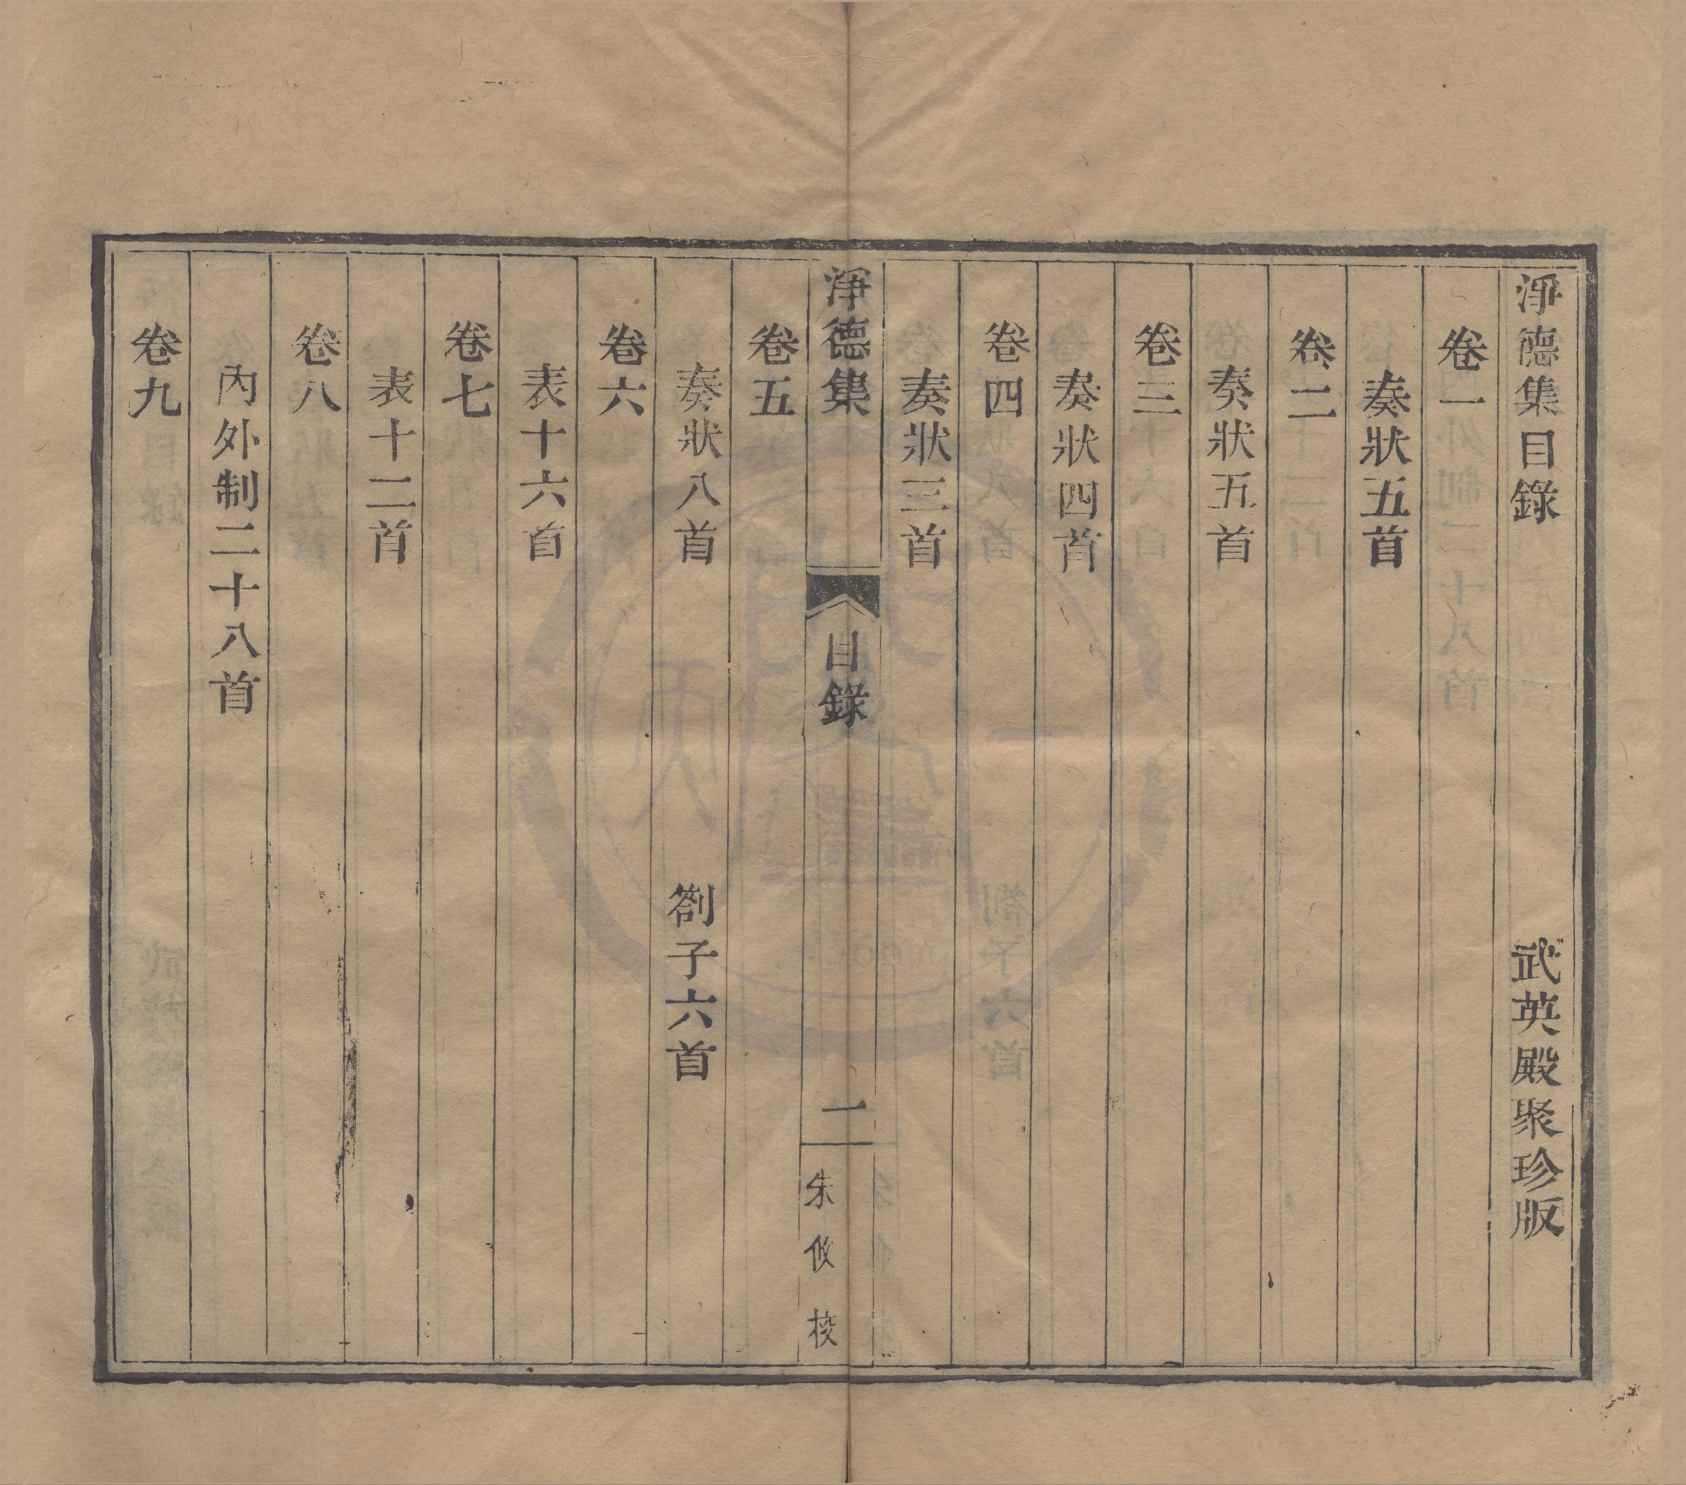 淨德集目錄 武英殿聚珍版
卷一
奏狀五首
卷二
奏狀五首
卷三
奏狀四首
卷四
奏狀三首
淨德集 目錄 一 朱攸校
卷五
奏狀八首 劄子六首
卷六
表十六首
卷七
表十二首
卷八
內外制二十八首
卷九